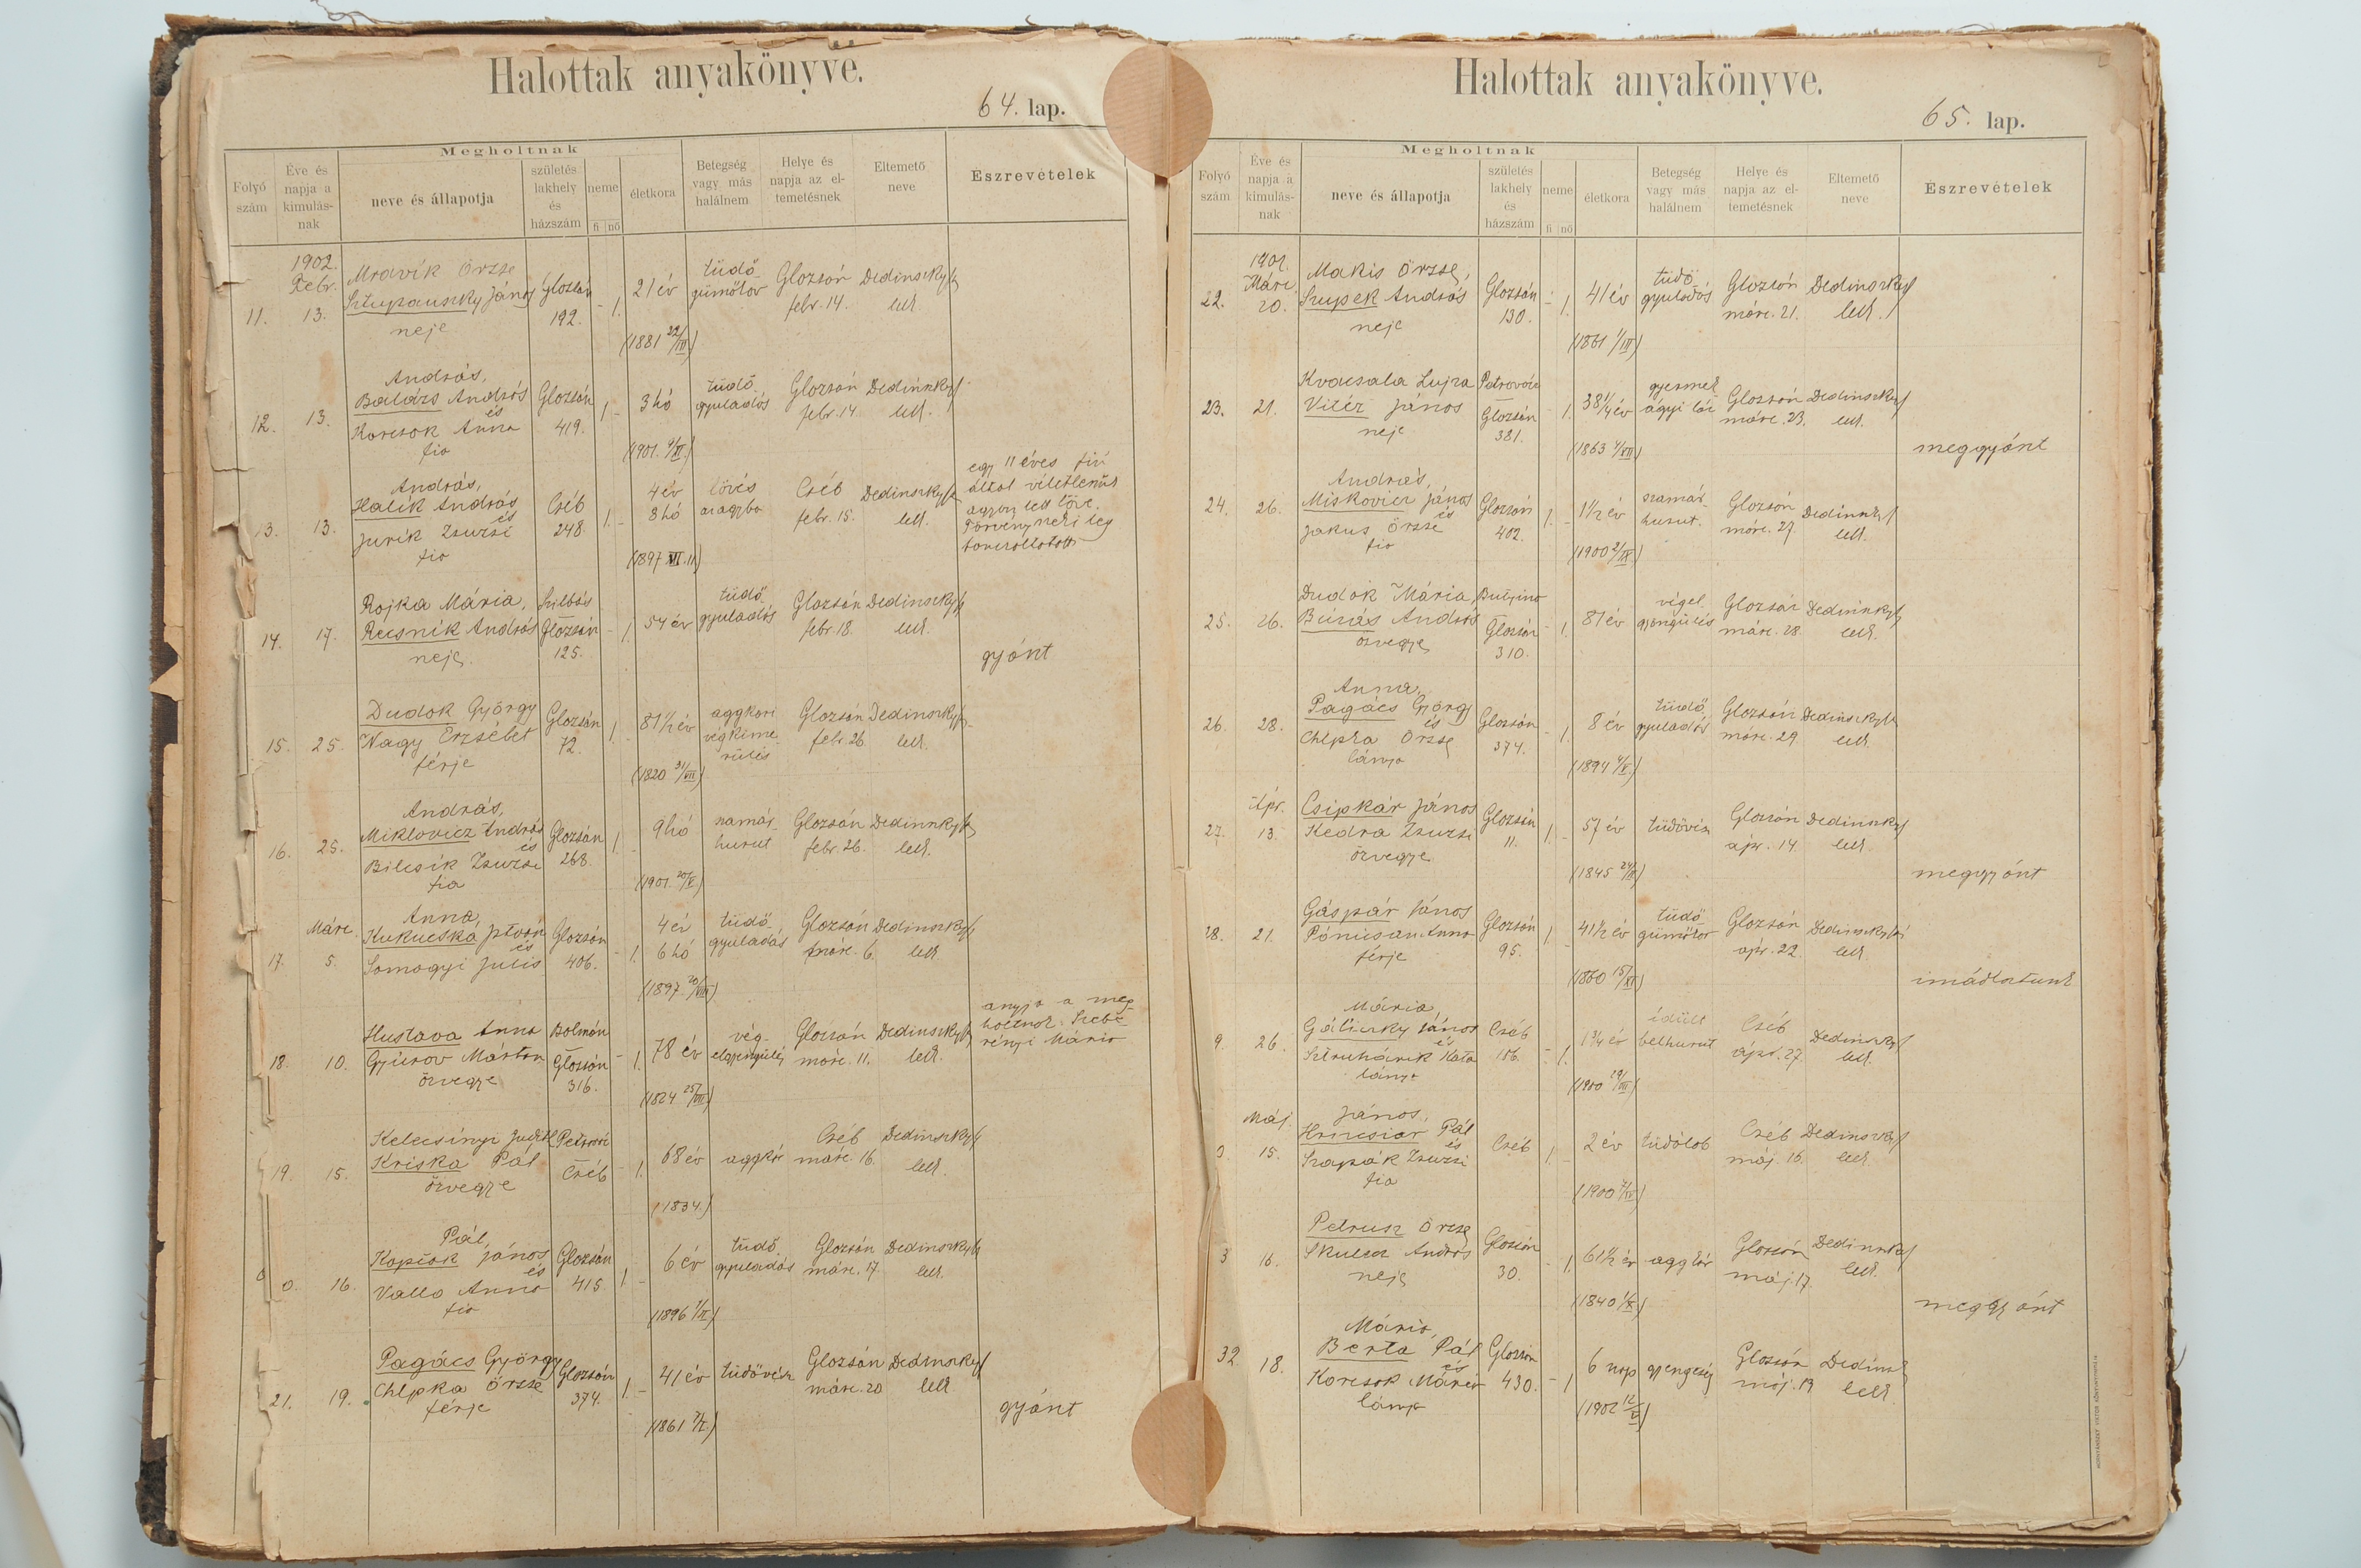 Halottak anyakönyve.
64. lap.
Megholtnak
Folyó szám
Éve és napja a kimulás-nak
neve és állapotja
születés lakhely és házszám
neme
fi nő
életkora
Betegség vagy más halálnem
Helye és napja az el-temetésnek
Eltemető neve
Észrevételek
1902. Febr.
11. 13. Mravik Örzse Sztupauszky János neje Glozsán 192. 1. 21 év tüdő gümőkor Glozsán febr. 14. Dedinszky lelk.
(1881 22/III)
12. 13. András, Balázs András és Korcsok Anna fia Glozsán 419. 1. 3 hó tüdő gyuladás Glozsán febr. 14 Dedinszky lelk.
(1901. 4/XI.)
13. 13. András, Halik András és Jurik Zsuzsi fia Cséb 248. 1. 4 év 8 hó lövés Cséb febr. 15. Dedinszky lelk. egy 11 éves fiú által véletlenül agyon lett lőve.
(1897 VI. 11)
14. 17. Rojka Mária, Recsnik András neje. Szilbás Glozsán 125. 1. 54 év tüdő gyuladás Glozsán febr. 18. Dedinszky lelk.
gyónt
15. 25. Dudok György Nagy Erzsébet férje Glozsán 72. 1. 81 1/2 év aggkori végkimerülés Glozsán febr. 26 Dedinszky lelk.
(1820 31/VII)
16. 25. András, Miklovicz András és Bilcsik Zsuzsi fia Glozsán 268. 1. 9 hó szamár hurut Glozsán febr. 26. Dedinszky lelk.
(1901. 20/V)
Márc.
17. 5. Anna, Kukucska István és Somogyi Julis Glozsán 406. 1. 4 év 6 hó tüdő gyuladás Glozsán márc. 6. Dedinszky lelk
(1897. 20/VIII)
18. 10. Hustava Anna Gyurov Márton özvegye Bolmán Glozsán 316. 1. 78 év vég elgyengülés Glozsán márc. 11. Dedinszky lelk. anyja a megholtnak: Szeberényi Mária
(1824 25/VII)
19. 15. Kelecsényi Judit Kriska Pál özvegye Petrovác Cséb 1. 68 év aggkór Cséb márc. 16. Dedinszky lelk.
(1834.)
0. 16. Pál, Kopcsok János és Vallo Anna fia Glozsán 415 1. 6 év tüdő gyuladás Glozsán márc. 17 Dedinszky lelk.
(1896 1/II)
21. 19. Pagács György Chlpka Örzse férje Glozsán 374. 1. 41 év tüdővész Glozsán márc. 20 Dedinszky lelk
gyónt
Halottak anyakönyve.
65. lap.
Megholtnak
Folyó szám
Éve és napja a kimulás-nak
neve és állapotja
születés lakhely és házszám
neme
fi nő
életkora
Betegség vagy más halálnem
Helye és napja az el-temetésnek
Eltemető neve
Észrevételek
1902. Márc.
22. 20. Makis Örzse, Szupek András neje Glozsán 130. 1. 41 év tüdő gyuladás Glozsán márc. 21. Dedinszky lelk.
(1861 1/III)
23. 21. Kvacsala Lujza Vitéz János neje Petrovác Glozsán 381. 1. 38 1/4 év gyermek ágyi láz Glozsán márc. 23. Dedinszky lelk.
meggyónt
24. 26. András, Miskovicz János és Jakus Örzse fia Glozsán 402. 1. 1 1/2 év szamár hurut. Glozsán márc. 27. Dedinszky lelk.
(1900 2/IX)
25. 26. Dudok Mária, Búrás András özvegye Glozsán 310. 1. 81 év végelgyöngülés Glozsán márc. 28. Dedinszky lelk.
26. 28. Anna, Pagács György és Chlpka Örzse lánya Glozsán 374. 1. 8 év tüdő gyuladás Glozsán márc. 29. Dedinszky lelk.
Apr.
27. 13. Csipkár János Kedra Zsuzsi özvegye Glozsán 11. 1. 57 év tüdővész Glozsán ápr. 14. Dedinszky lelk.
meggyónt
28. 21. Gáspár János Pánicsan Anna férje Glozsán 95. 1. 41 1/2 év tüdő gümőkor Glozsán ápr. 22. Dedinszky lelk.
(1860 15/XI)
9. 26. Mária, Gáliczky János és Sztruhárik Kata lánya Cséb 156. 1. 1 3/4 év idült bélhurut Cséb ápr. 27. Dedinszky lelk.
Máj.
15. János, Hrncsiar Pál és Szapák Zsuzsi fia Cséb 1. 2 év tüdőlob Cséb máj. 16. Dedinszky lelk.
3 16. Petrusz Örzse Skulcz András neje Glozsán 30. 1. 61 1/2 év aggkór Glozsán máj. 17. Dedinszky lelk.
meggyónt
32 18. Mária, Berta Pál és Korcsok Mária lánya Glozsán 430. 1 6 nap gyengeség Glozsán máj. 19 Dedinszky lelk